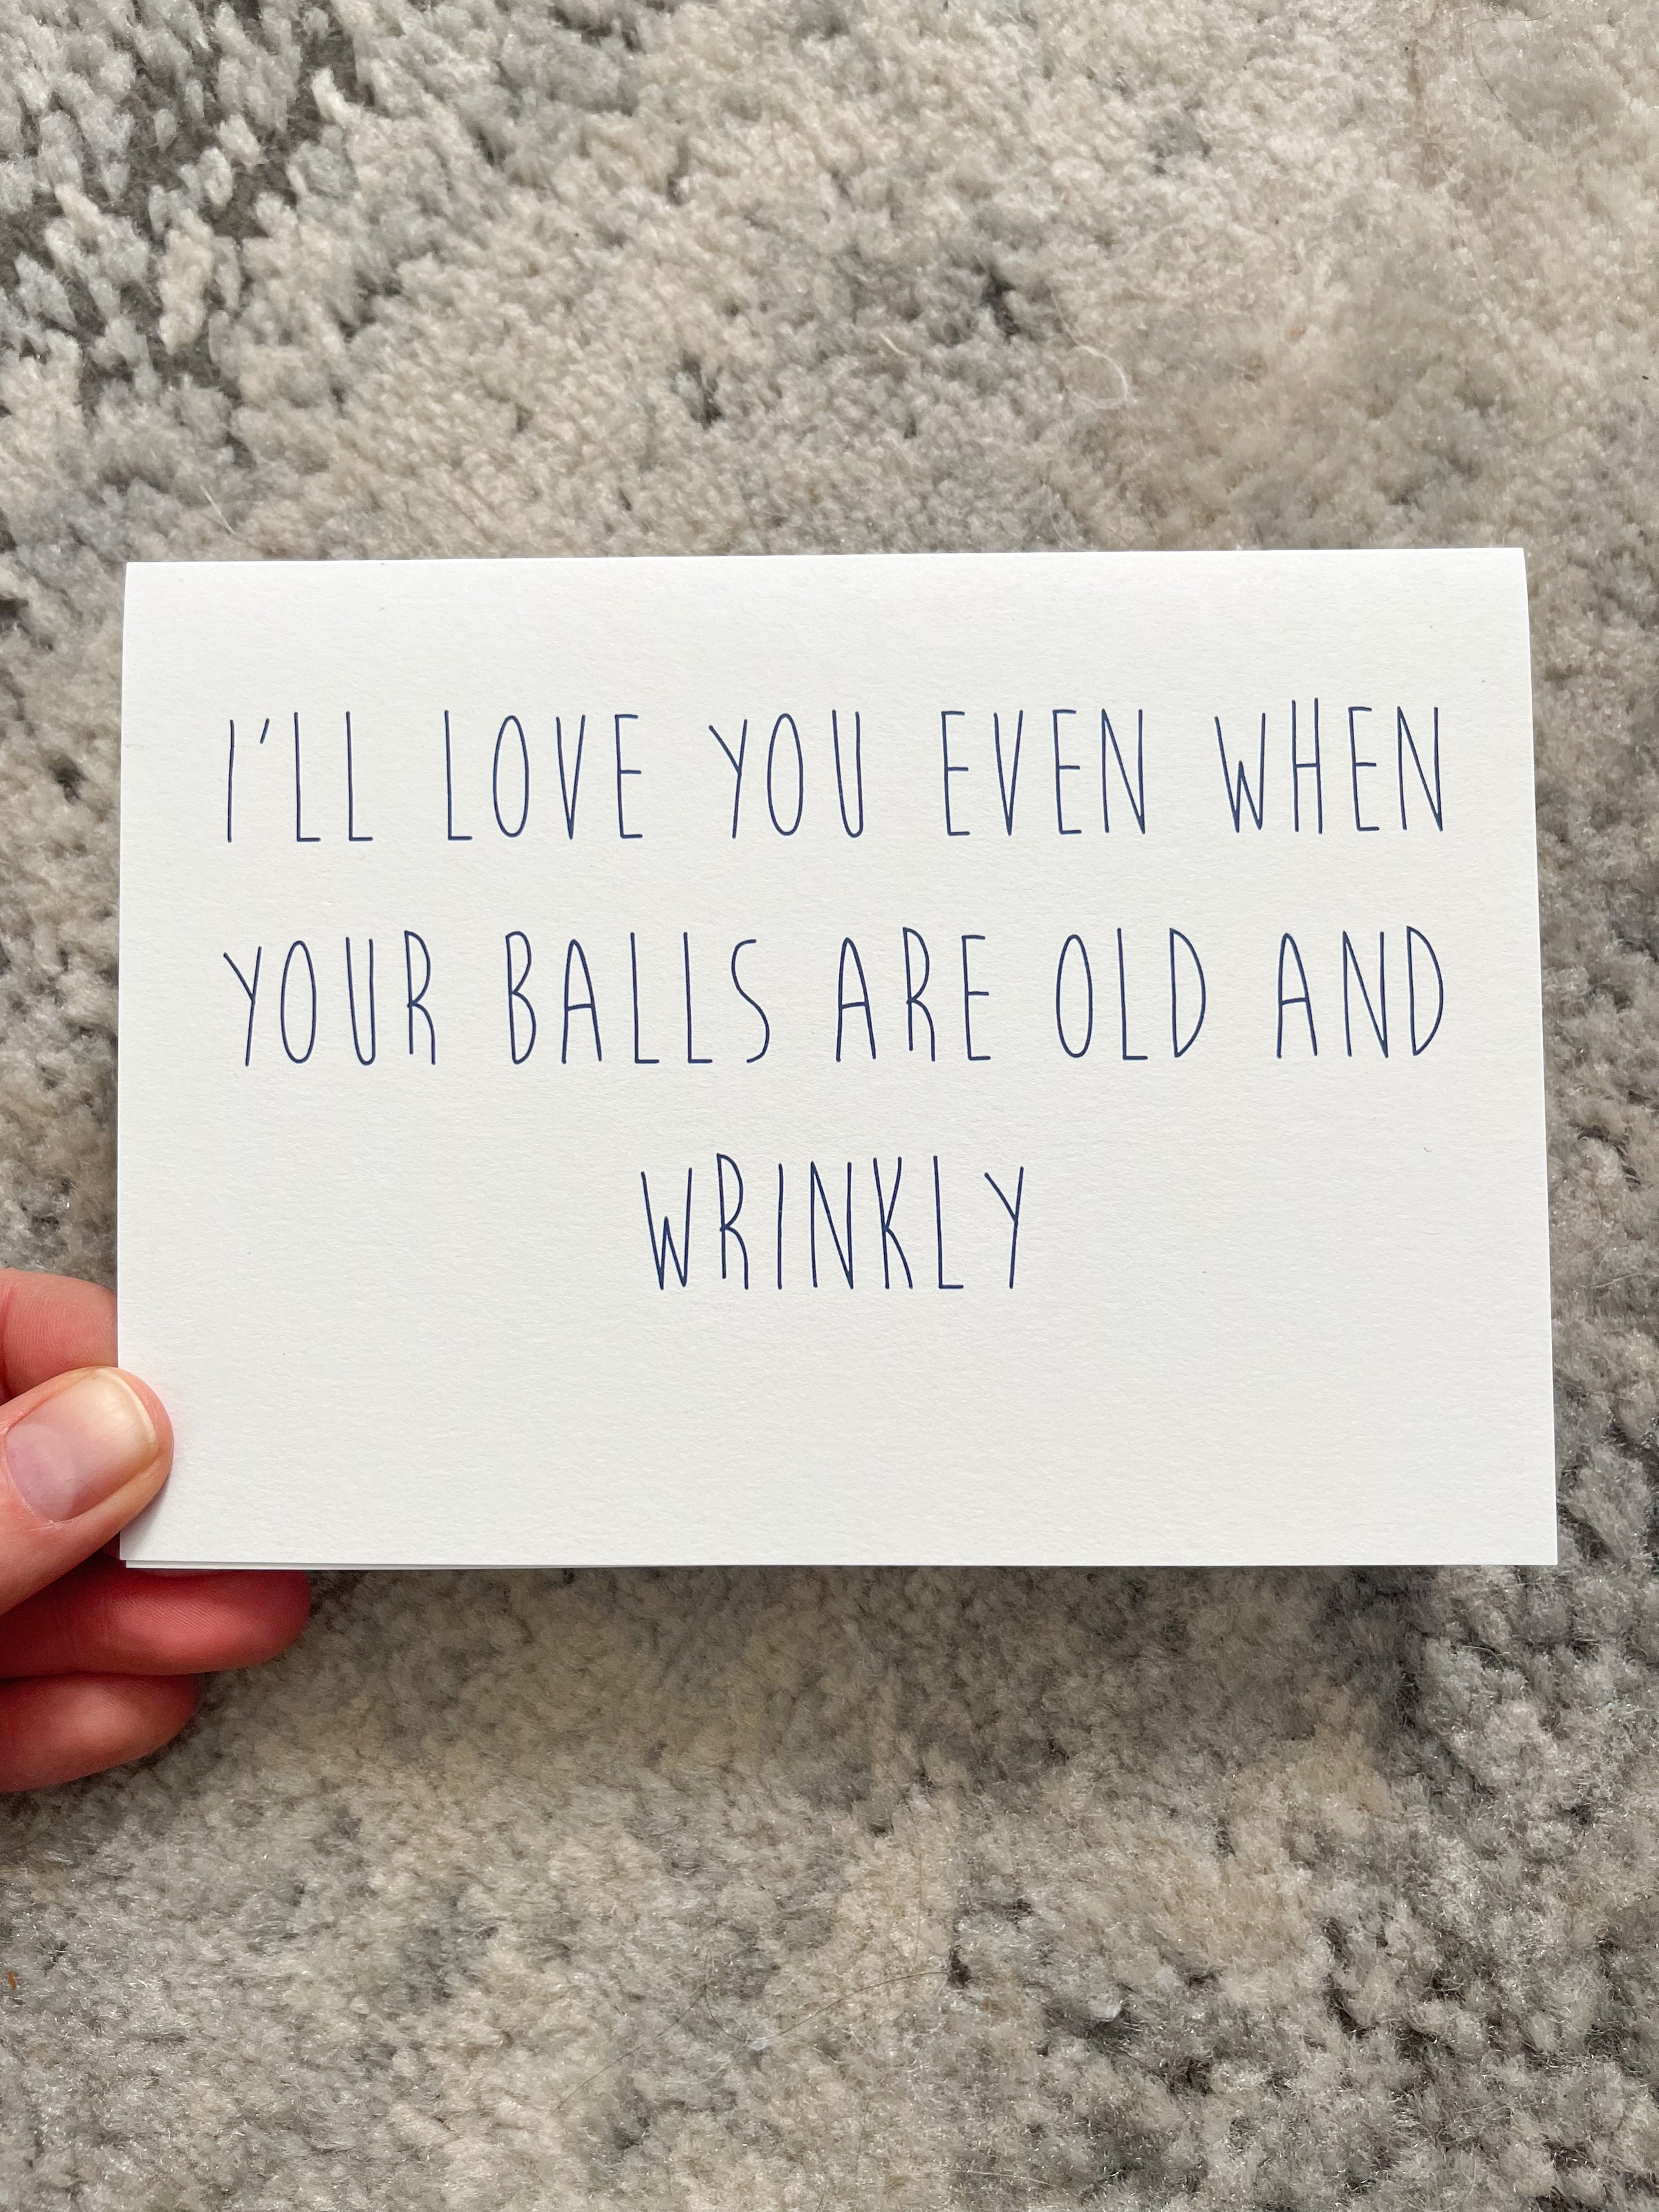 I'LL LOVE YOU EVEN WHEN
YOUR BALLS ARE OLD AND
WRINKLY